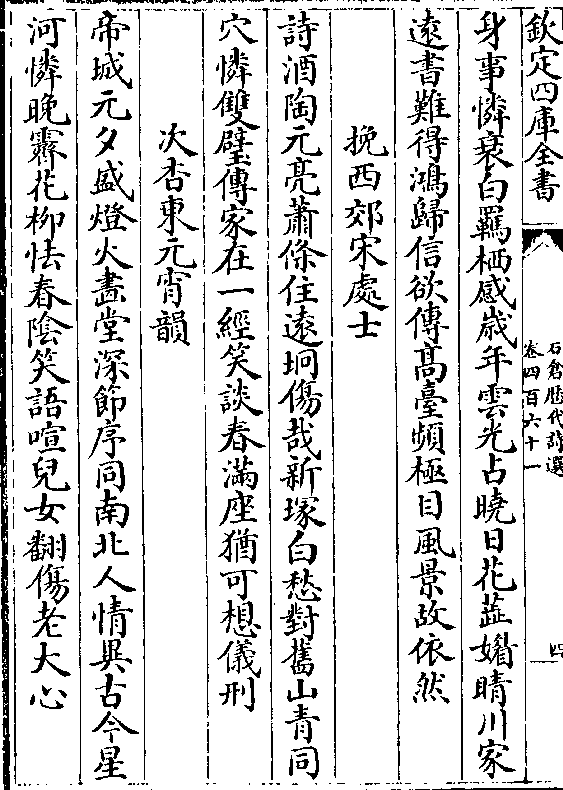 欽定四庫全書
石倉歷代詩選
卷四百六十一
四
身事憐衰白羈栖感歲年雲光占曉日花蕋媚晴川家
遠書難得鴻歸信欲傳髙臺頻極目風景故依然
挽西郊宋處士
詩酒陶元亮蕭條住遠坰傷哉新塚白愁對舊山青同
穴憐雙璧傳家在一經笑談春滿座猶可想儀刑
次杏東元宵韻
帝城元夕盛燈火畫堂深節序同南北人情異古今星
河憐晚霽花柳怯春陰笑語喧兒女翻傷老大心